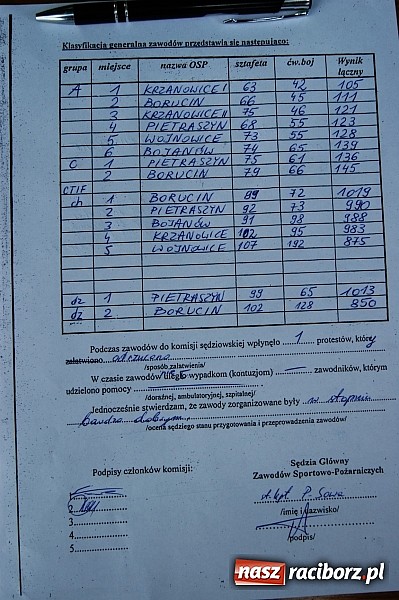 Klasyfikacja generalna zawodów przedstawia się następująco:
grupa miejsce nazwa OSP sztafeta ćw.boj Wynik łączny
A 1 KRZANOWICE I 63 42 105
2 BORUCIN 66 45 111
3 KRZANOWICE II 75 46 121
4 PIETRASZYN 68 55 123
5 WOJNOWICE 73 55 128
6 BOJANÓW 74 65 139
C 1 PIETRASZYN 75 61 136
2 BORUCIN 79 66 145
CTIF
ch 1 BORUCIN 99 72 1019
2 PIETRASZYN 92 73 990
3 BOJANÓW 91 98 988
4 KRZANOWICE 102 95 983
5 WOJNOWICE 107 192 875
dz 1 PIETRASZYN 99 65 1013
dz 2 BORUCIN 102 128 850
Podczas zawodów do komisji sędziowskiej wpłynęło 1 protestów, który
załatwiono odrzucono
/sposób załatwienia/
W czasie zawodów uległo wypadkom (kontuzjom) — zawodników, którym
udzielono pomocy
/doraźnej, ambulatoryjnej, szpitalnej/
Jednocześnie stwierdzam, że zawody zorganizowane były w stopniu
bardzo dobrym
/ocena sędziego stanu przygotowania i przeprowadzenia zawodów/
Podpisy członków komisji:
Sędzia Główny
Zawodów Sportowo-Pożarniczych
1
2
3
4
5
P. Sowa
/imię i nazwisko/
/podpis/
nasz raciborz.pl